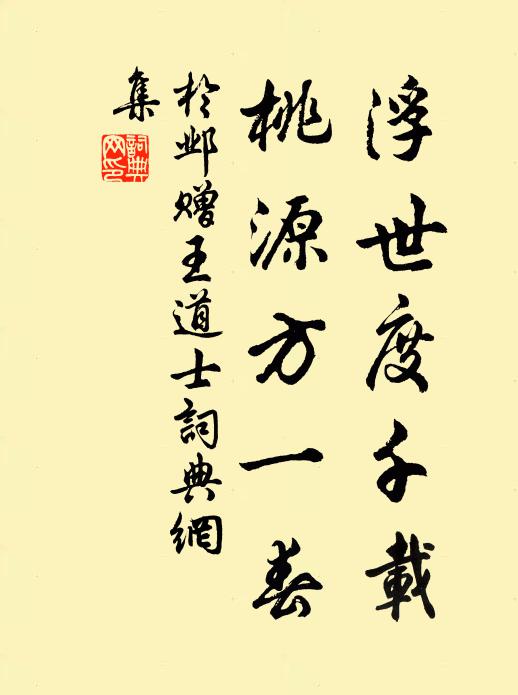 浮世度千載
桃源方一春
於鄴贈王道士詞典網
集
詞典
網印